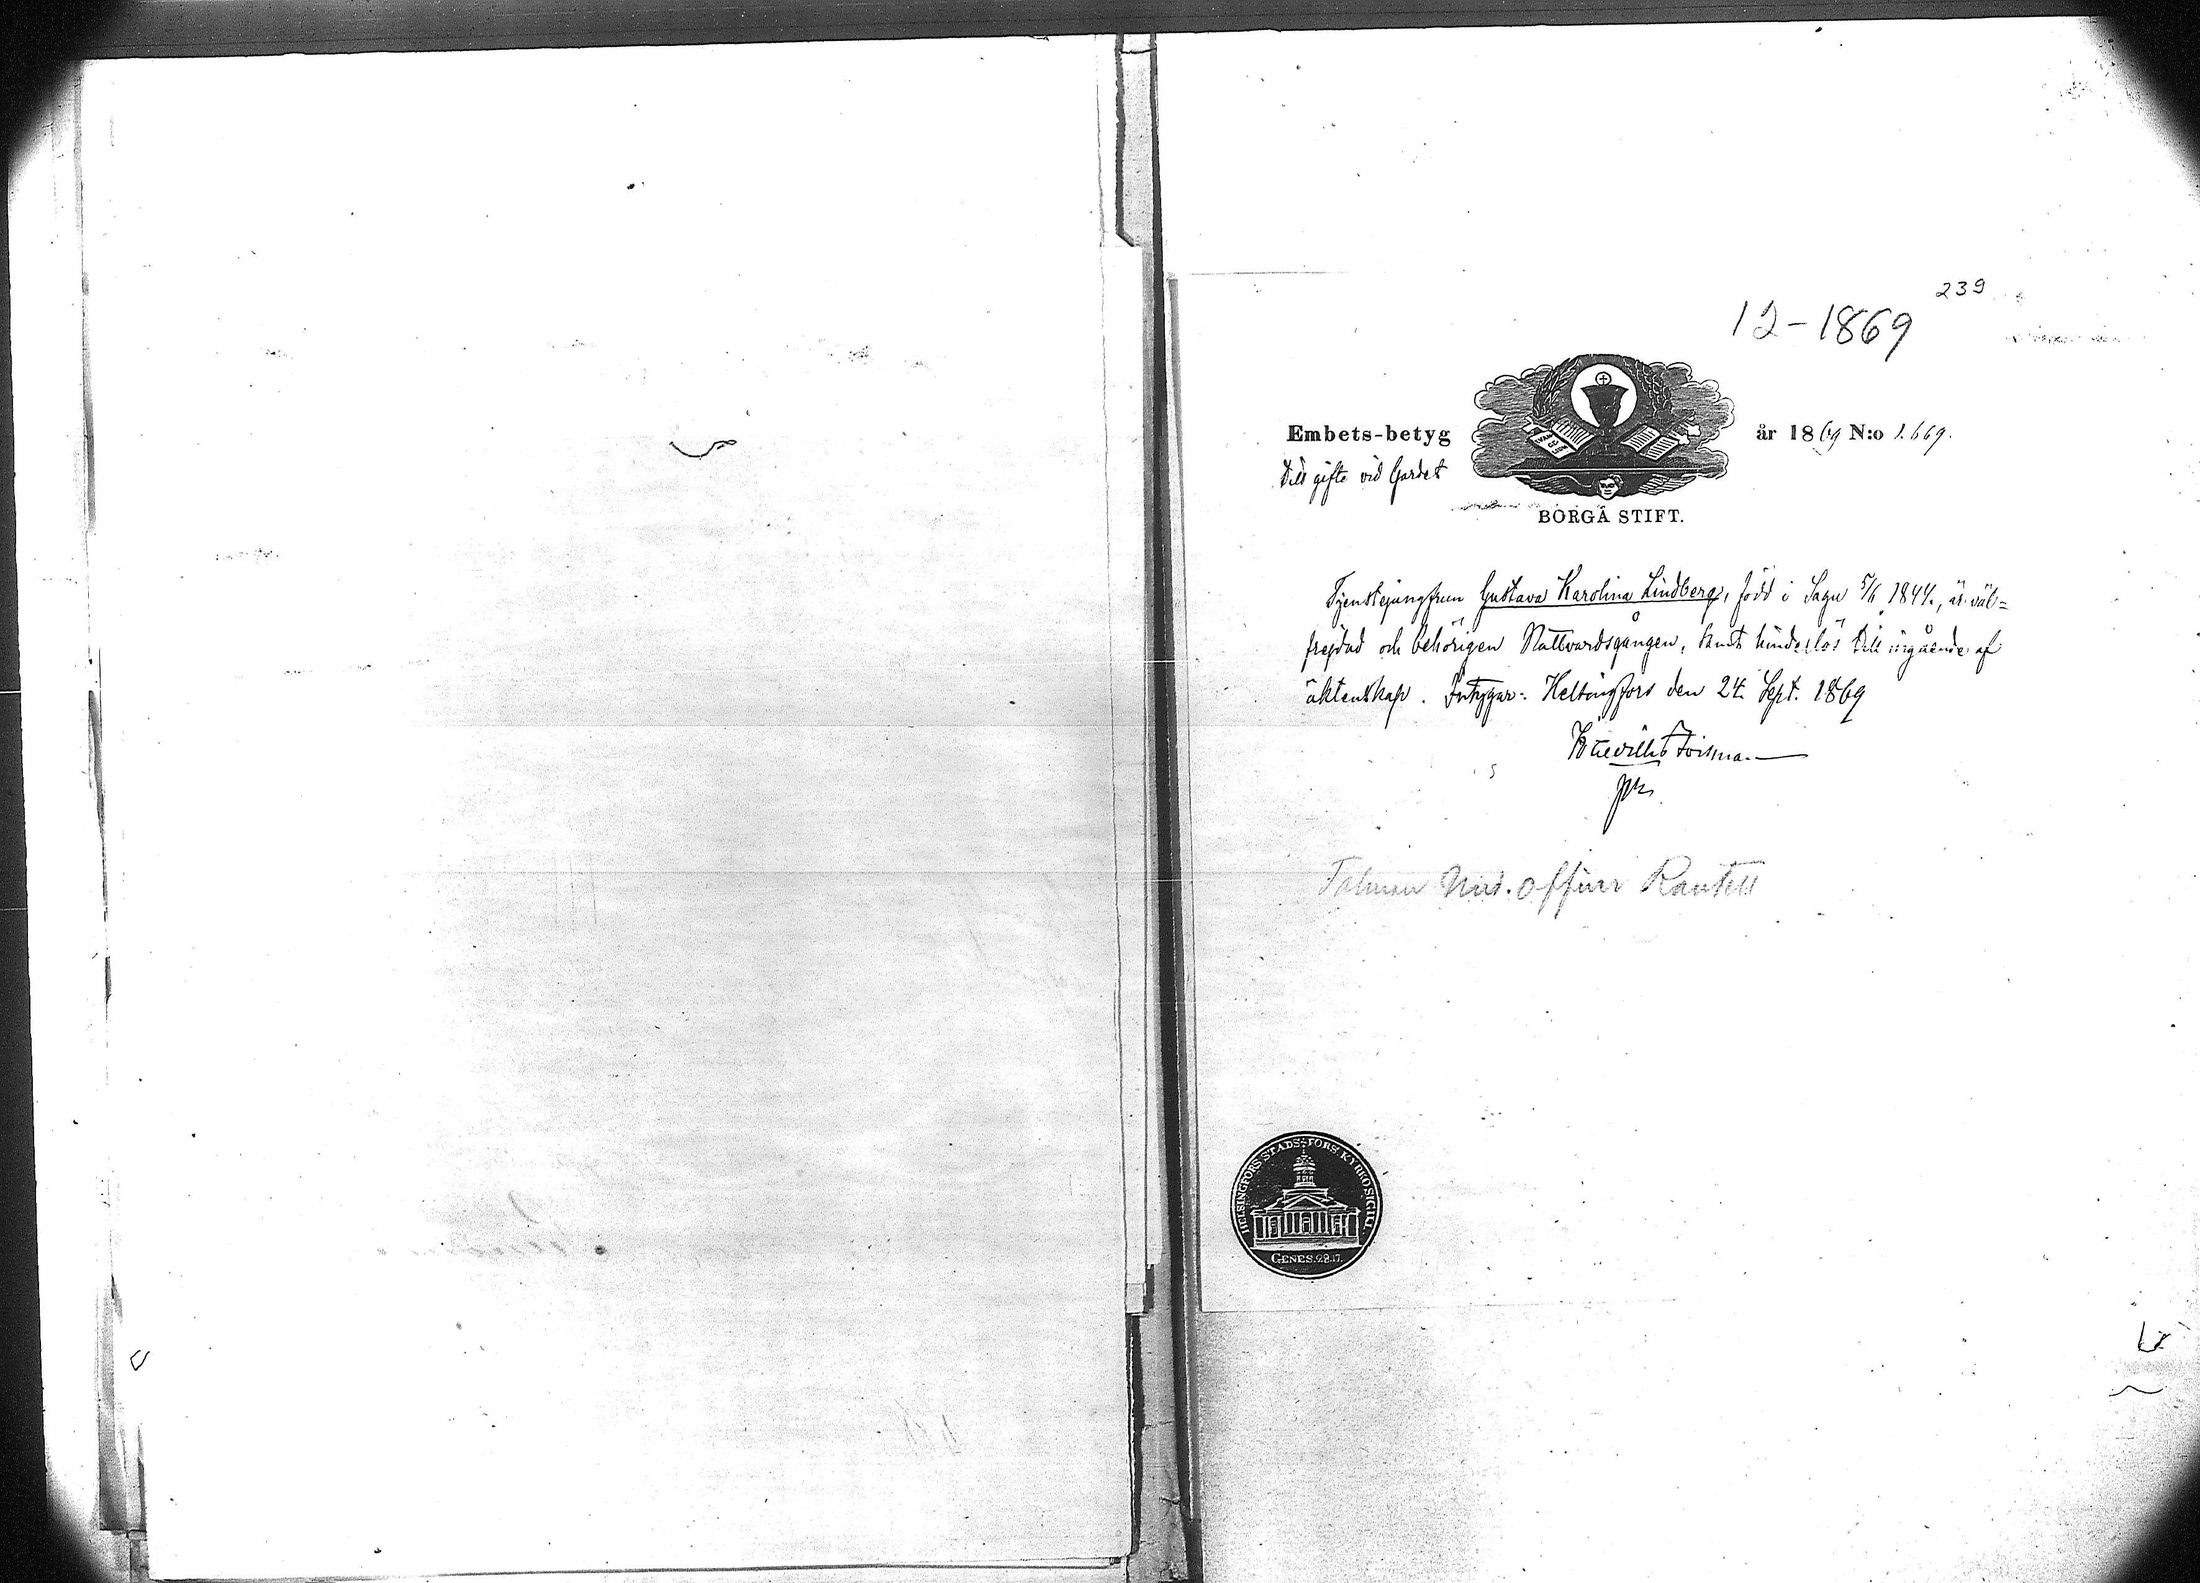 239
12-1869
Embets-betyg år 1869 N:o 1.669.
Till gifte vid Gardet
EVAN GELIUM
BORGÅ STIFT.
Tjenstejungfrun Gustava Karolina Lindberg, född i Sagu 5/6 1844, är väl=
frejdad och behörigen Nattvardsgången, samt hinderlös till ingående af
äktenskap. Intygar: Helsingfors den 24 Sept. 1869
Talman Und. officer
HELSINGFORS STADS-FÖRS. KYRKO SIGILL
GENES. 28.17.